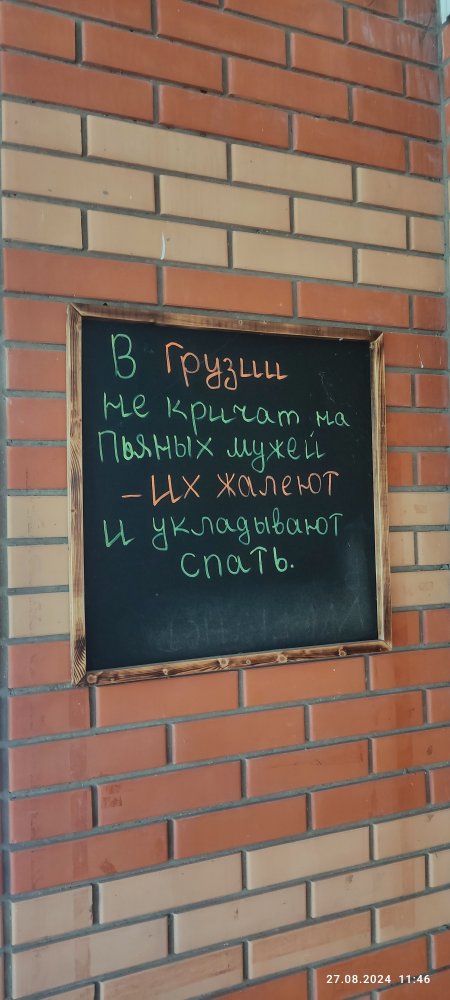 В Грузии
не кричат на
Пьяных мужей
- Их жалеют
и укладывают
спать.
27.08.2024 11:46